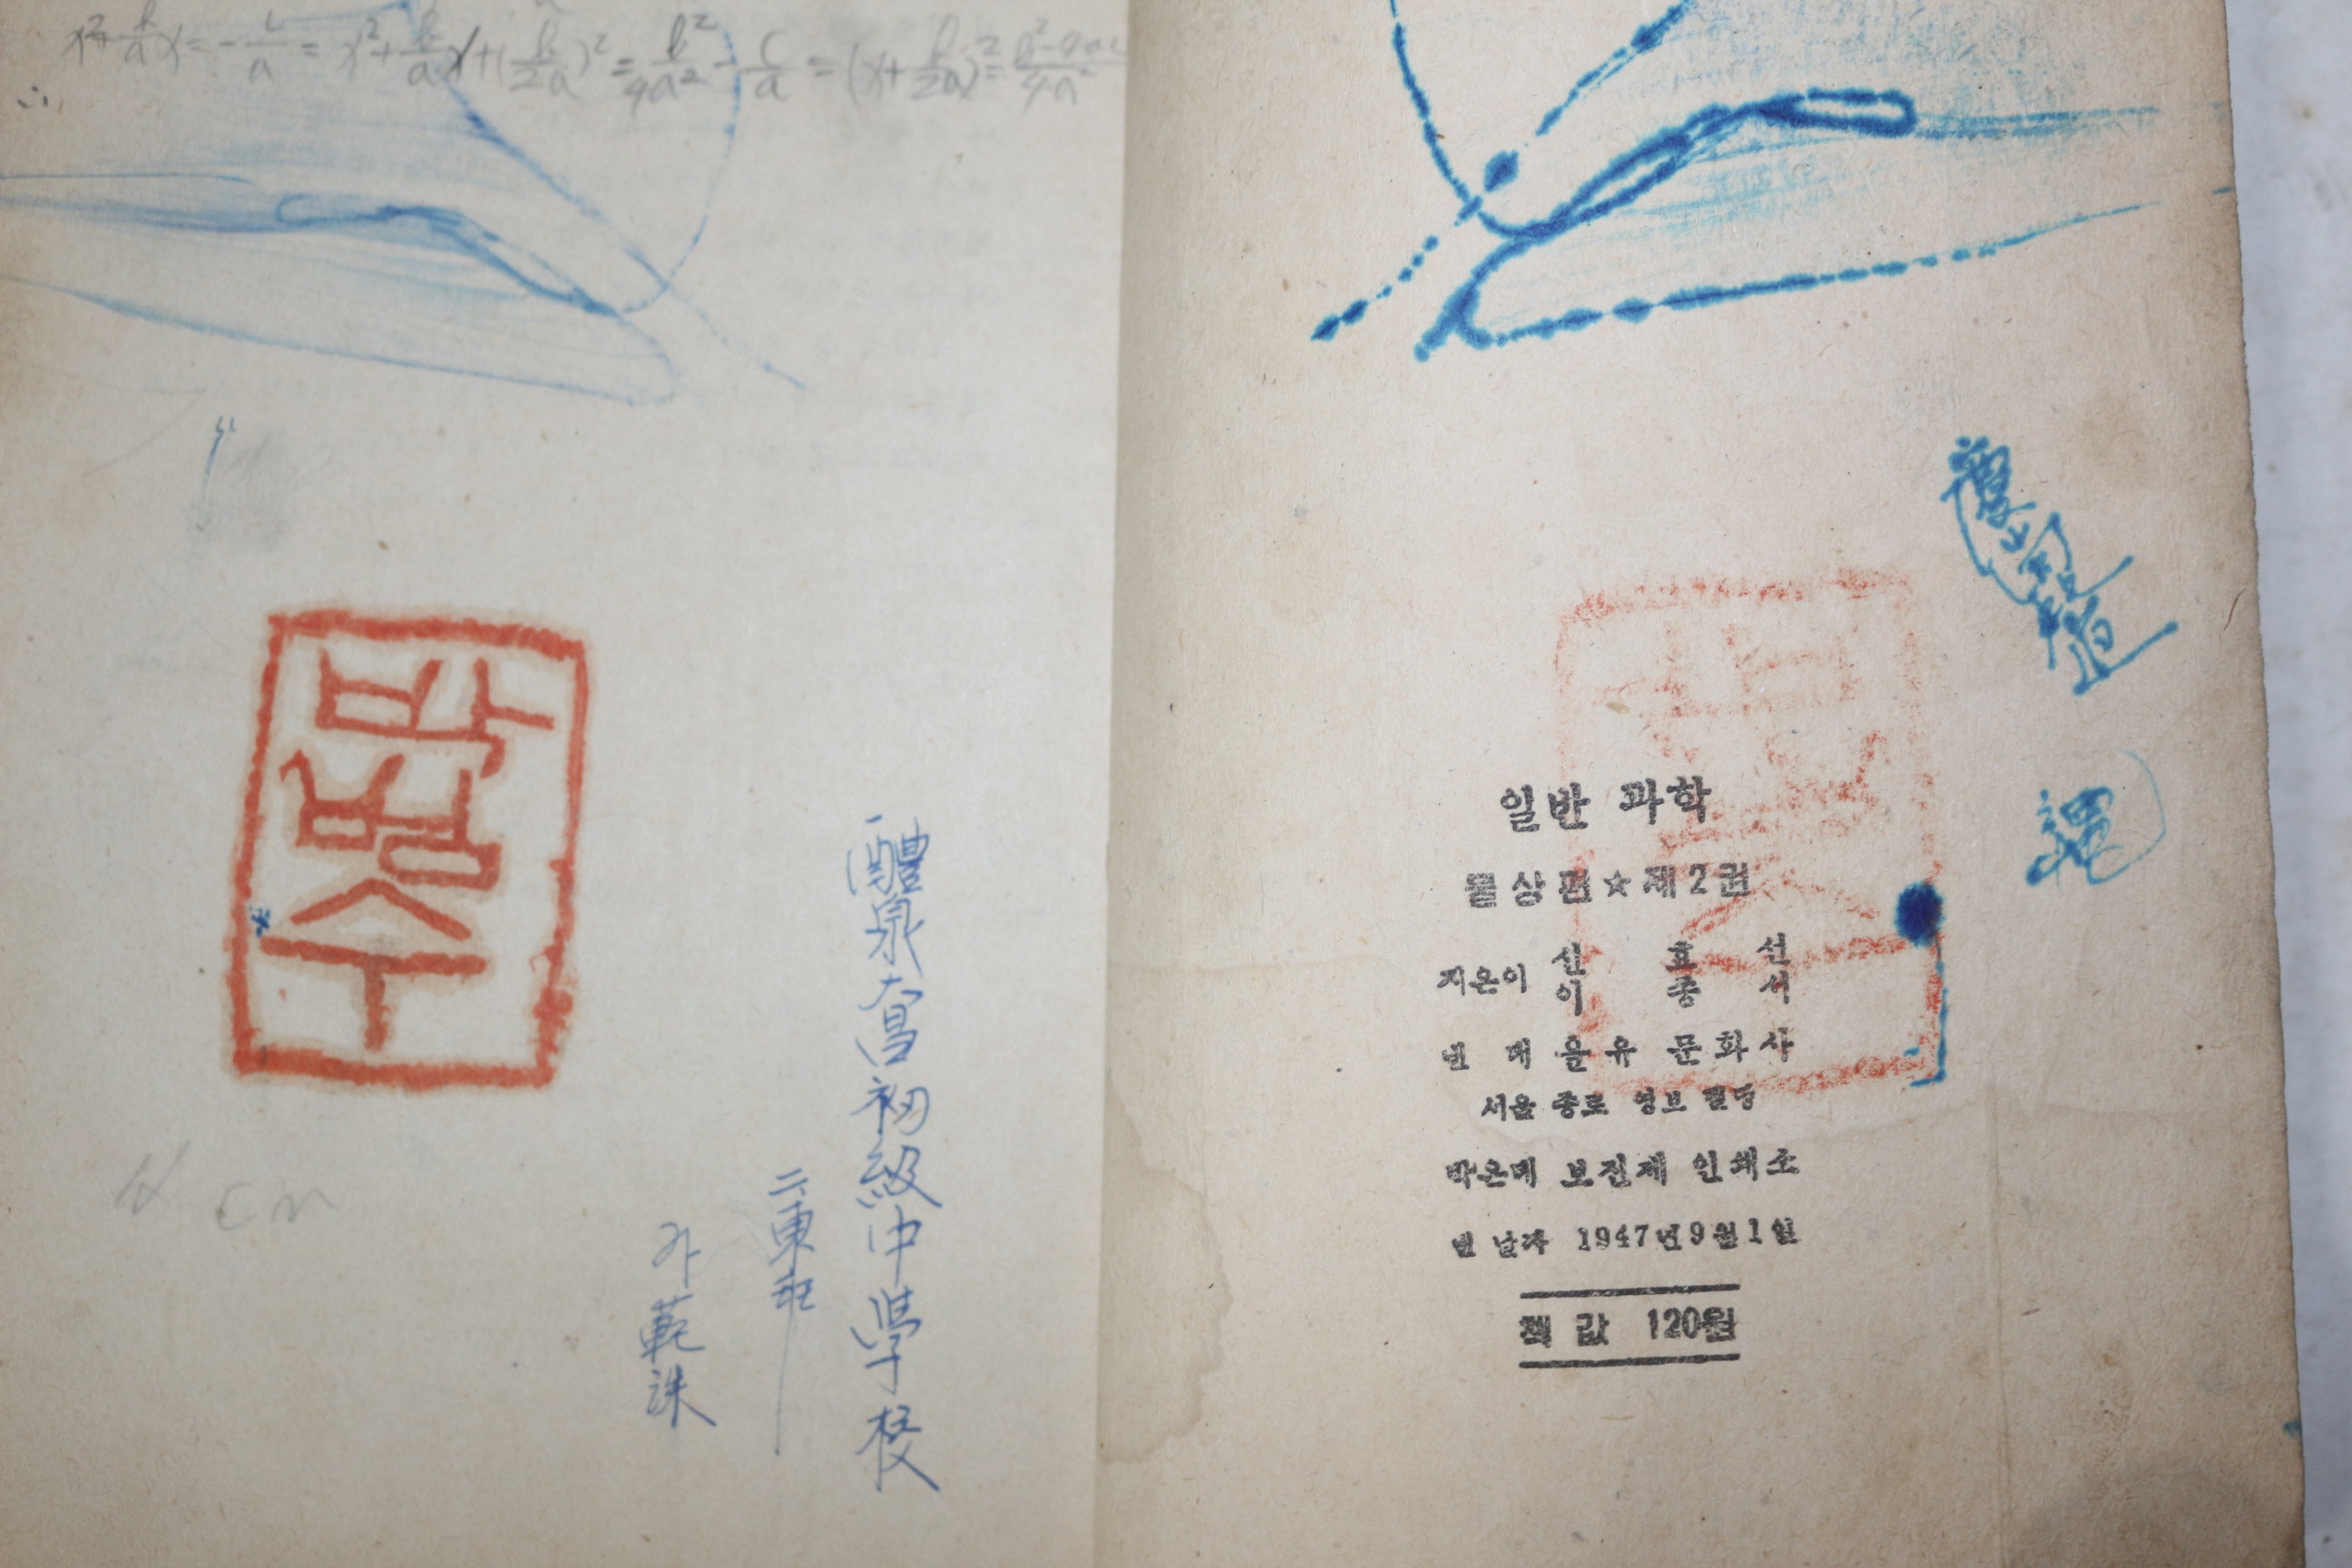 x²+b/a x=-c/a = x²+b/a x+(b/2a)²=b²/4a²-c/a=(x+b/2a)²=b²-4ac/4a²
∴
박범수
醴泉大昌初級中學校
二東班
朴範洙
cm
일반 과학
물상편☆제2권
지은이 신효선
이종서
낸 데 을유 문화사
서울 종로 영보 빌딩
박은데 보진제 인쇄소
낸 날자 1947년9월1일
책 값 120원